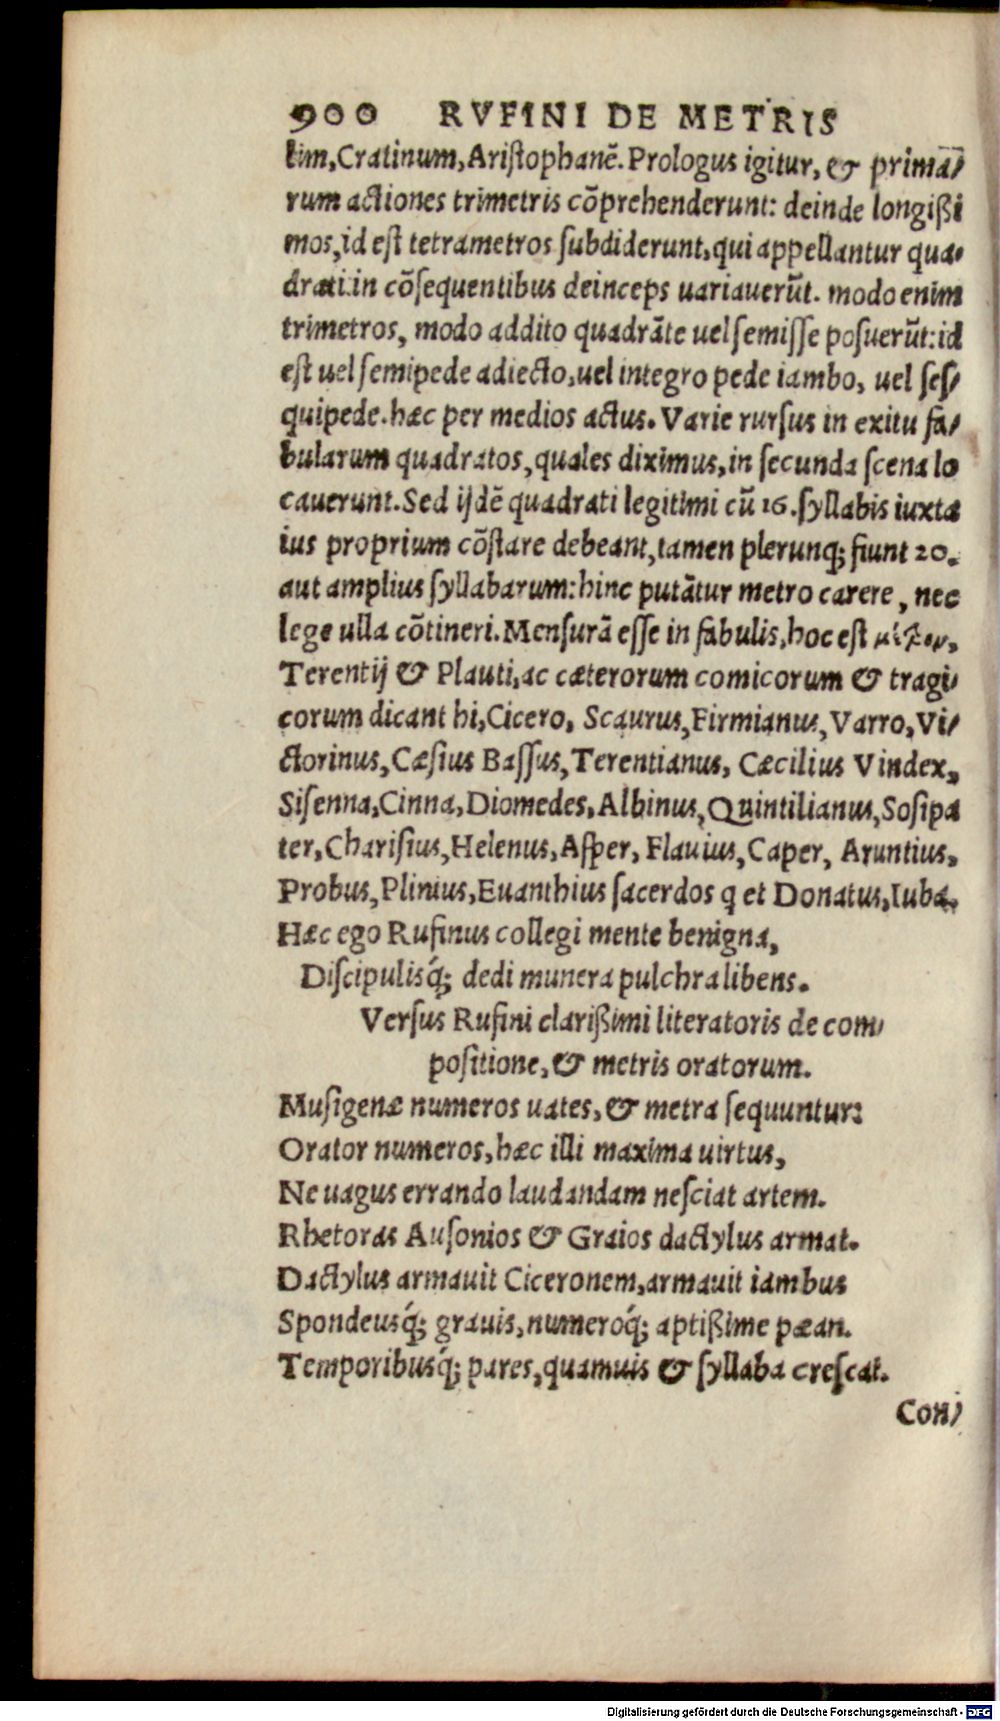 900 RVFINI DE METRIS
lim, Cratinum, Aristophanē. Prologus igitur, & primā/
rum actiones trimetris cōprehenderunt: deinde longißi
mos, id est tetrametros subdiderunt, qui appellantur qua-
drati. in cōsequentibus deinceps uariauerūt. modo enim
trimetros, modo addito quadrāte uel semisse posuerūt: id
est uel semipede adiecto, uel integro pede iambo, uel ses/
quipede. hæc per medios actus. Varie rursus in exitu fa/
bularum quadratos, quales diximus, in secunda scena lo
cauerunt. Sed ijdē quadrati legitimi cū 16. syllabis iuxta
ius proprium cōstare debeant, tamen plerunq; fiunt 20.
aut amplius syllabarum: hinc putātur metro carere, nec
lege ulla cōtineri. Mensurā esse in fabulis, hoc est μέτρον,
Terentij & Plauti, ac cæterorum comicorum & tragi/
corum dicant hi, Cicero, Scaurus, Firmianus, Varro, Vi/
ctorinus, Cæsius Bassus, Terentianus, Cæcilius Vindex,
Sisenna, Cinna, Diomedes, Albinus, Quintilianus, Sosipa
ter, Charisius, Helenus, Asper, Flauius, Caper, Aruntius,
Probus, Plinius, Euanthius sacerdos q et Donatus, Iuba.
Hæc ego Rufinus collegi mente benigna,
Discipulisq́; dedi munera pulchra libens.
Versus Rufini clarißimi literatoris de com/
positione, & metris oratorum.
Musigenæ numeros uates, & metra sequuntur:
Orator numeros, hæc illi maxima uirtus,
Ne uagus errando laudandam nesciat artem.
Rhetoras Ausonios & Graios dactylus armat.
Dactylus armauit Ciceronem, armauit iambus
Spondeusq́; grauis, numeroq́; aptißime pæan.
Temporibusq́; pares, quamuis & syllaba crescat.
Con/
Digitalisierung gefördert durch die Deutsche Forschungsgemeinschaft - DFG